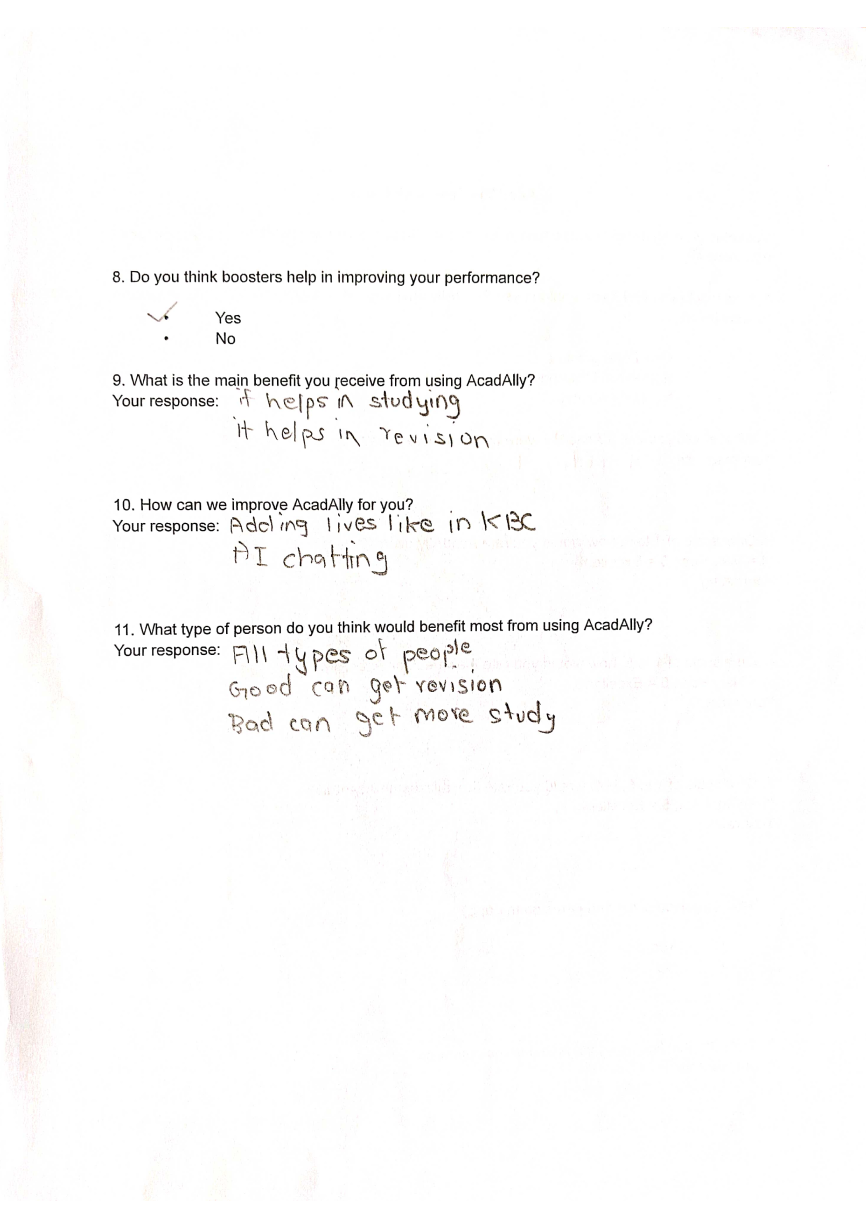 8. Do you think boosters help in improving your performance?
Yes
No
9. What is the main benefit you receive from using AcadAlly?
Your response: it helps in studying
it helps in revision
10. How can we improve AcadAlly for you?
Your response: Adding lives like in KBC
AI chatting
11. What type of person do you think would benefit most from using AcadAlly?
Your response: All types of people
Good can get revision
Bad can get more study